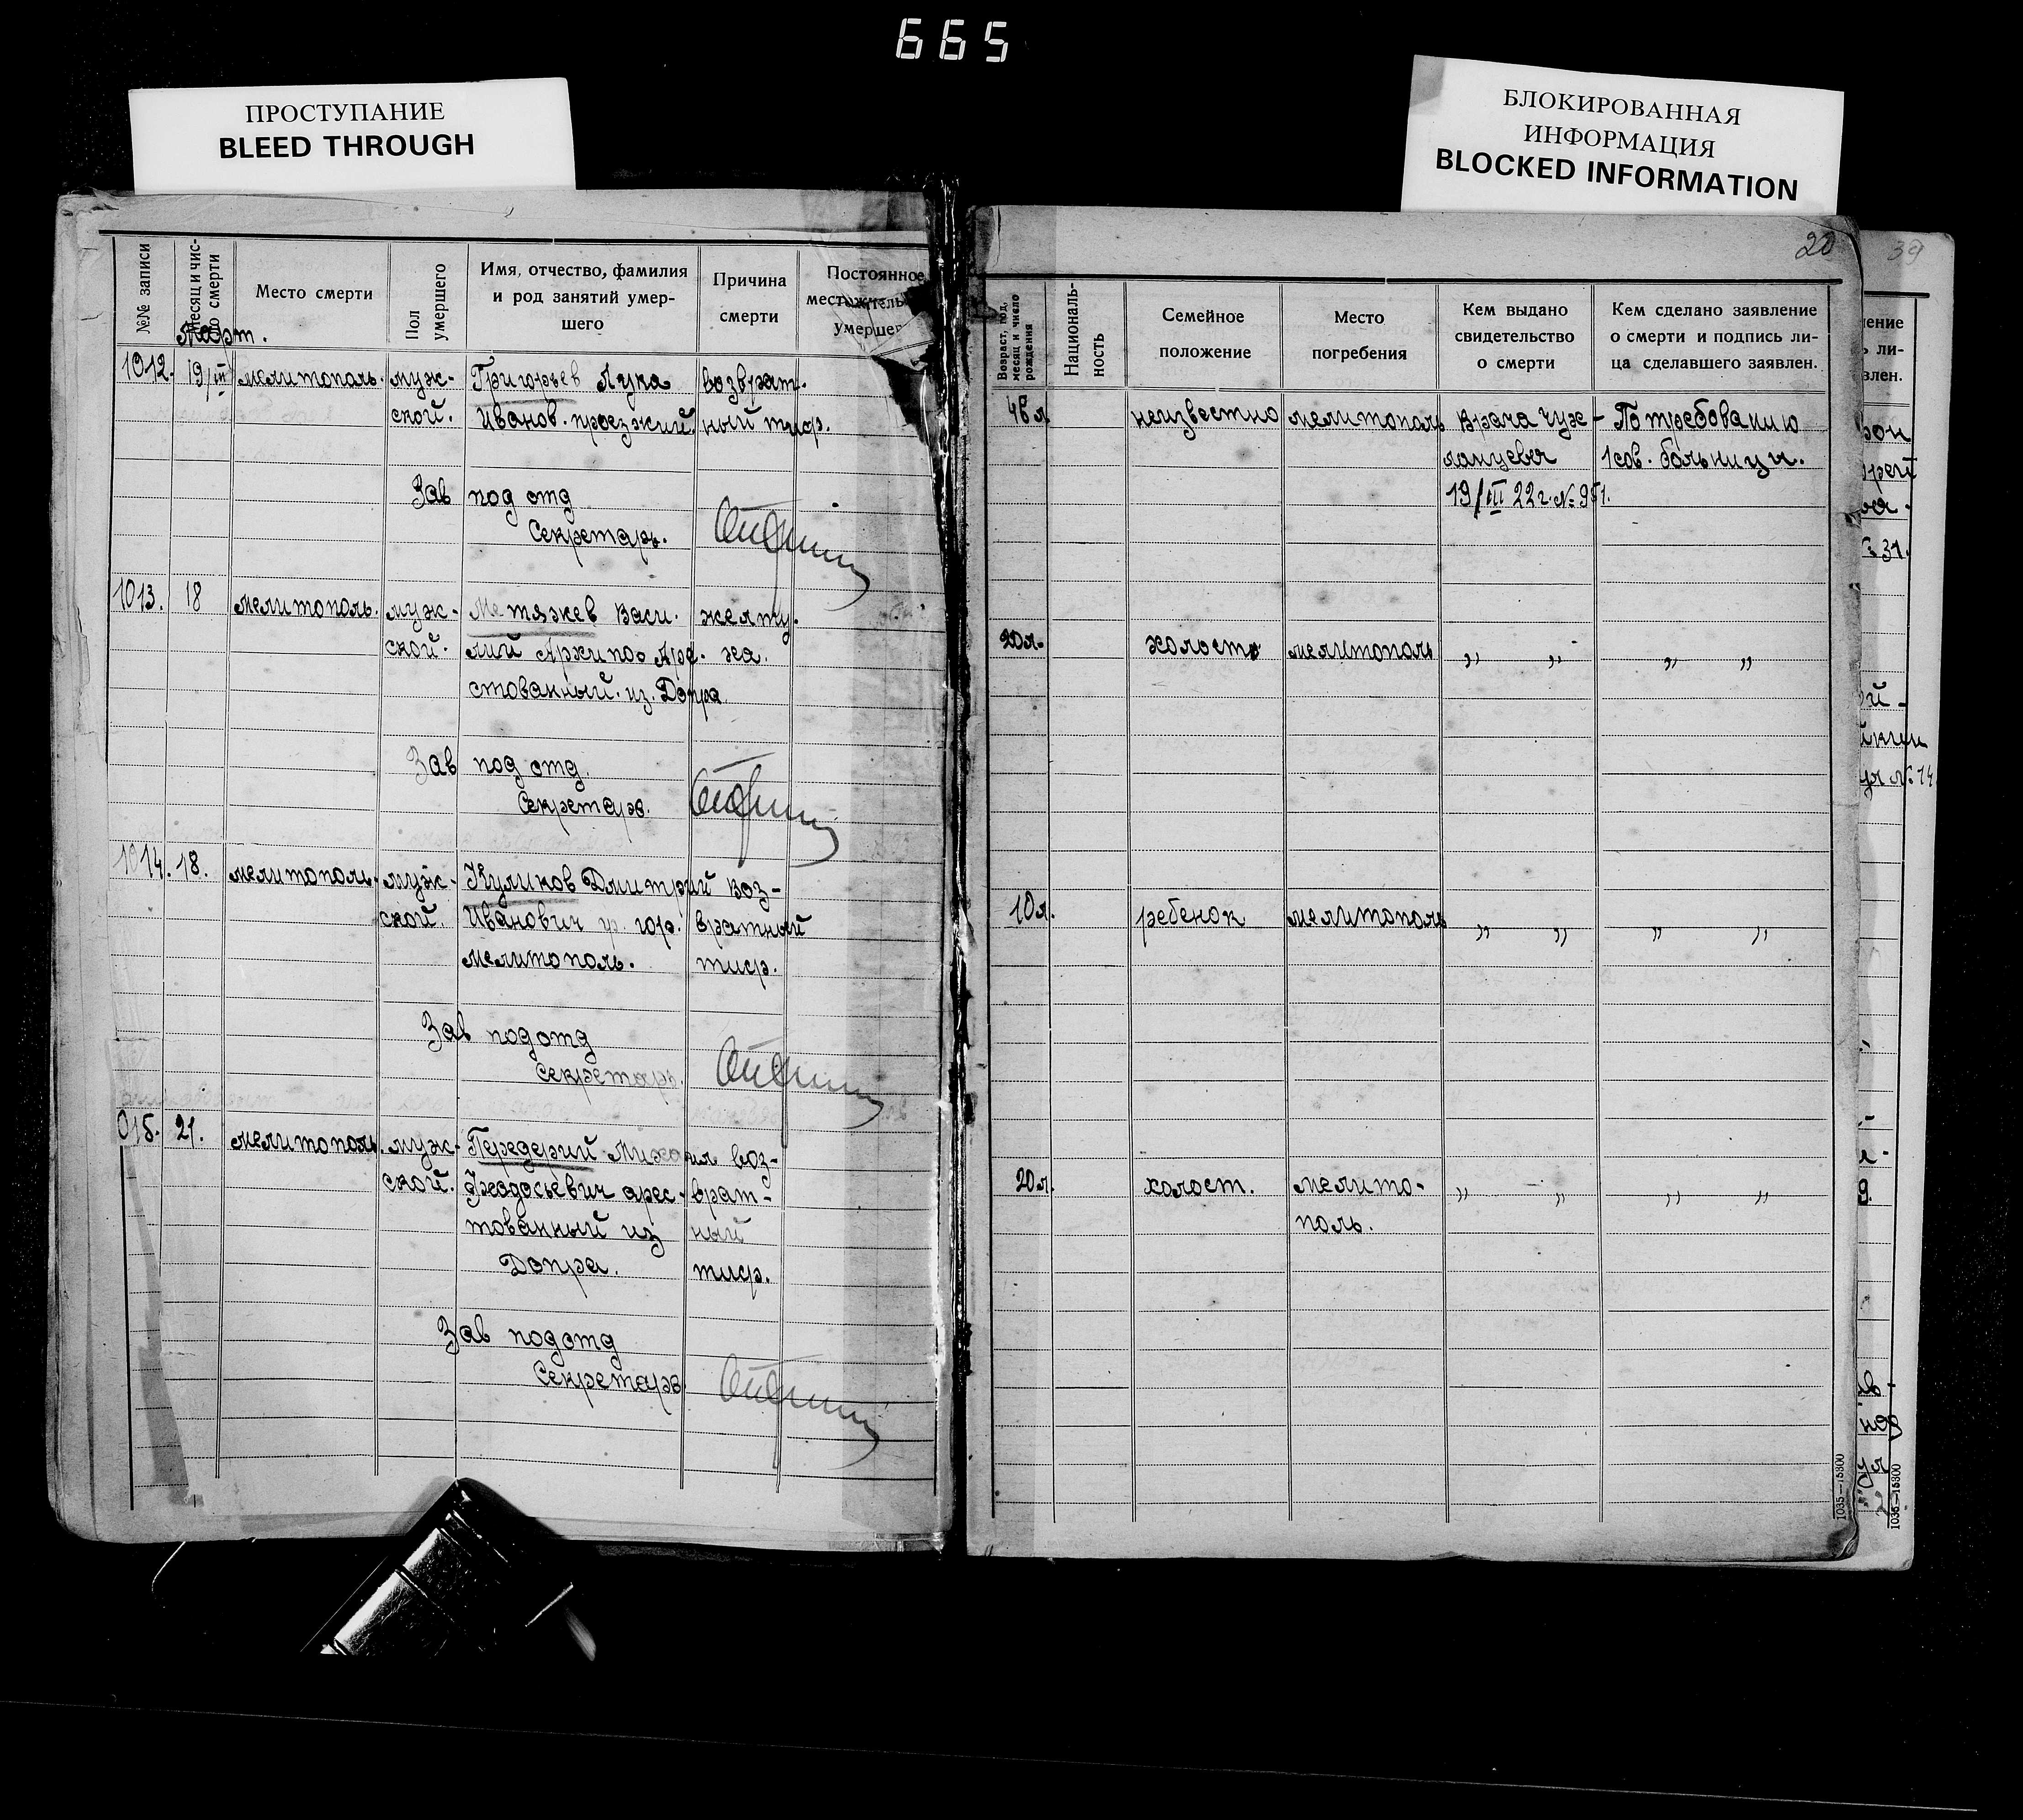 665
ПРОСТУПАНИЕ
BLEED THROUGH
БЛОКИРОВАННАЯ
ИНФОРМАЦИЯ
BLOCKED INFORMATION
№№ записи
Месяц и чис-
ло смерти
Место смерти
Пол
умершего
Имя, отчество, фамилия
и род занятий умер-
шего
Причина
смерти
Постоянное
умершег
Март.
1012. 19/III мелитополь. муж- Григорьев Лука возврат-
ской. Иванов. проезжий. ный тиф.
Зав под отд
Секретарь.
1013. 18 мелитополь. муж- Метяжев Васи. желту.
ской. лий Архипов Аре. ха.
стованный. из. Допра
Зав под отд.
Секретарь.
1014. 18. мелитополь. муж- Куликов Дмитрий воз-
ской. Иванович гр. гор. вратный
мелитополь. тиф.
Зав подотд
Секретарь.
015. 21. мелитополь. муж- Передерий Михаил воз-
ской. Феодосьевич арес- врат-
тованный из ный
Допра. тиф.
Зав подотд
Секретарь
20
39
Возраст, год,
месяц и число
рождения
Националь-
ность
Семейное
положение
Место
погребения
Кем выдано
свидетельство
о смерти
Кем сделано заявление
о смерти и подпись ли-
ца сделавшего заявлен.
48 л неизвестно мелитополь Врача - По требованию
1 сов. больницы.
19/III 22 г. №
20л. холост мелитополь " " " "
10л. ребенок мелитополь " " " "
20л. холост. мелито- " " " "
поль.
1035—15300
ение
ли-
влен.
№ 31.
№ 14
1035—15300